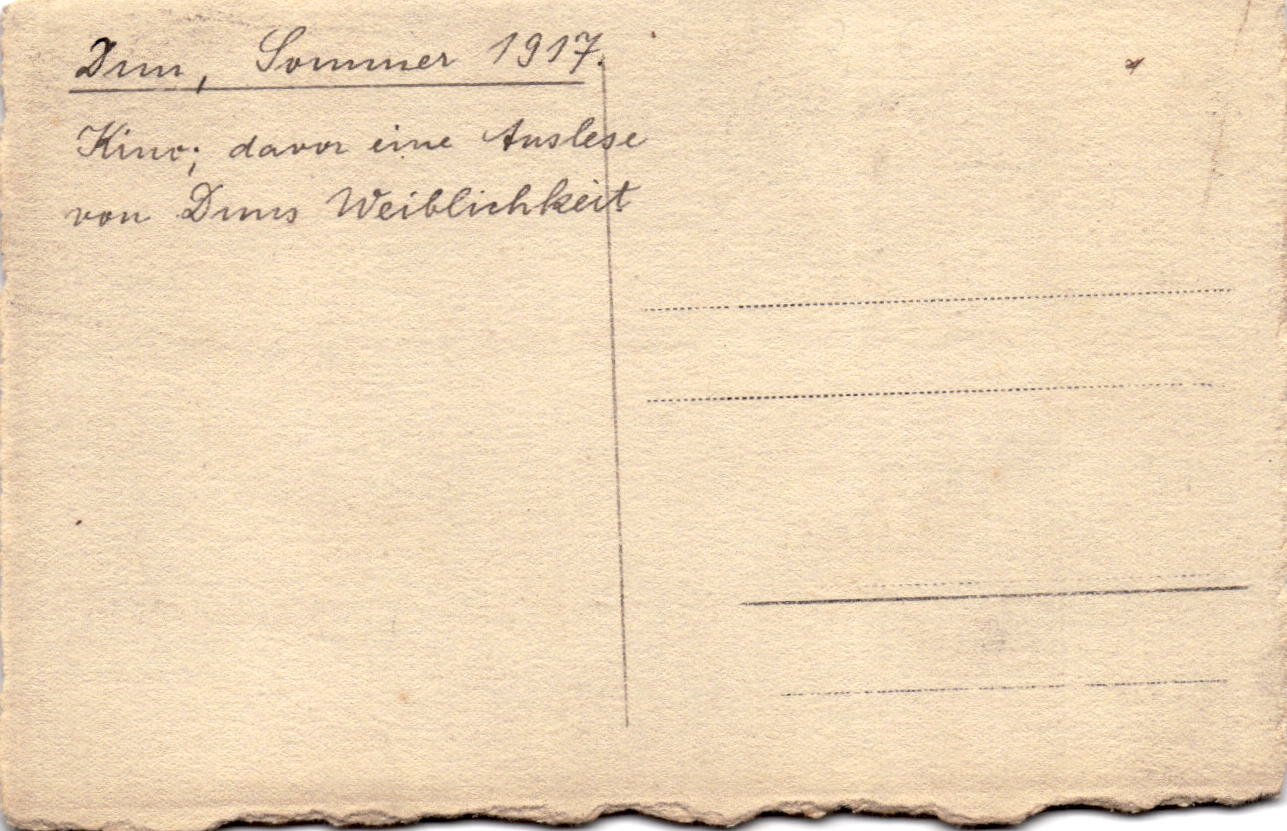 Dun, Sommer 1917.
Kino; davor eine Auslese
von Duns Weiblichkeit